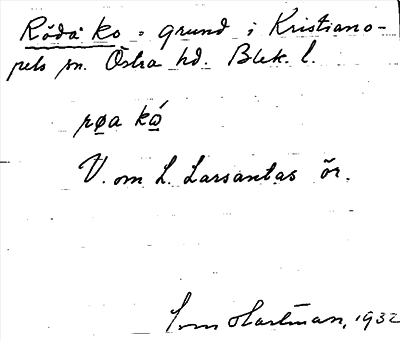 Röda ko = grund i Kristiano-
pels sn. Östra hd. Blek. l.
røa kó
V. om L. Larsantas ör.
Hartman, 1932